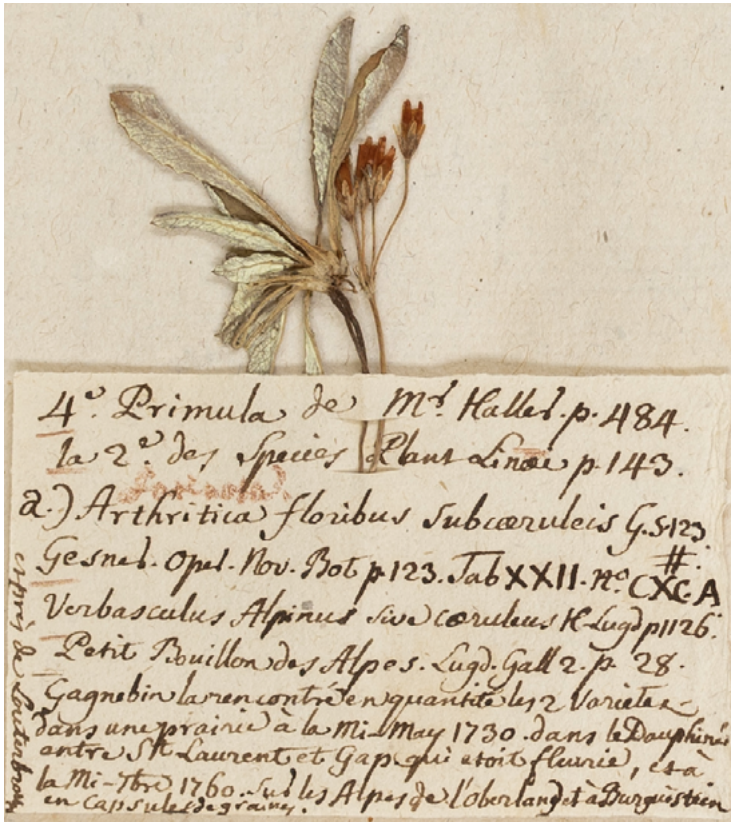 4º. Primula de Mr. Haller. p. 484.
la 2e. des Species Plant Linæi p. 143.
a.) Arthritica floribus subcœruleis G.S. 123
#.
Gesner. Oper. Nov. Bot p. 123. Tab XXII. Nº CXC. A
Verbasculus Alpinus sive cœruleus H. Lugd p 1126.
Petit Bouillon des Alpes. Lugd. Gall 2. p. 28.
Gagnebin la rencontré en quantité les 2 Varietez
dans une prairie à la Mi-May 1730. dans le Dauphiné
entre St. Laurent et Gap qui etoit fleurie, et à
la Mi-7bre 1760. sur les Alpes de l'oberland et à Burguistein
en Capsules de graines.